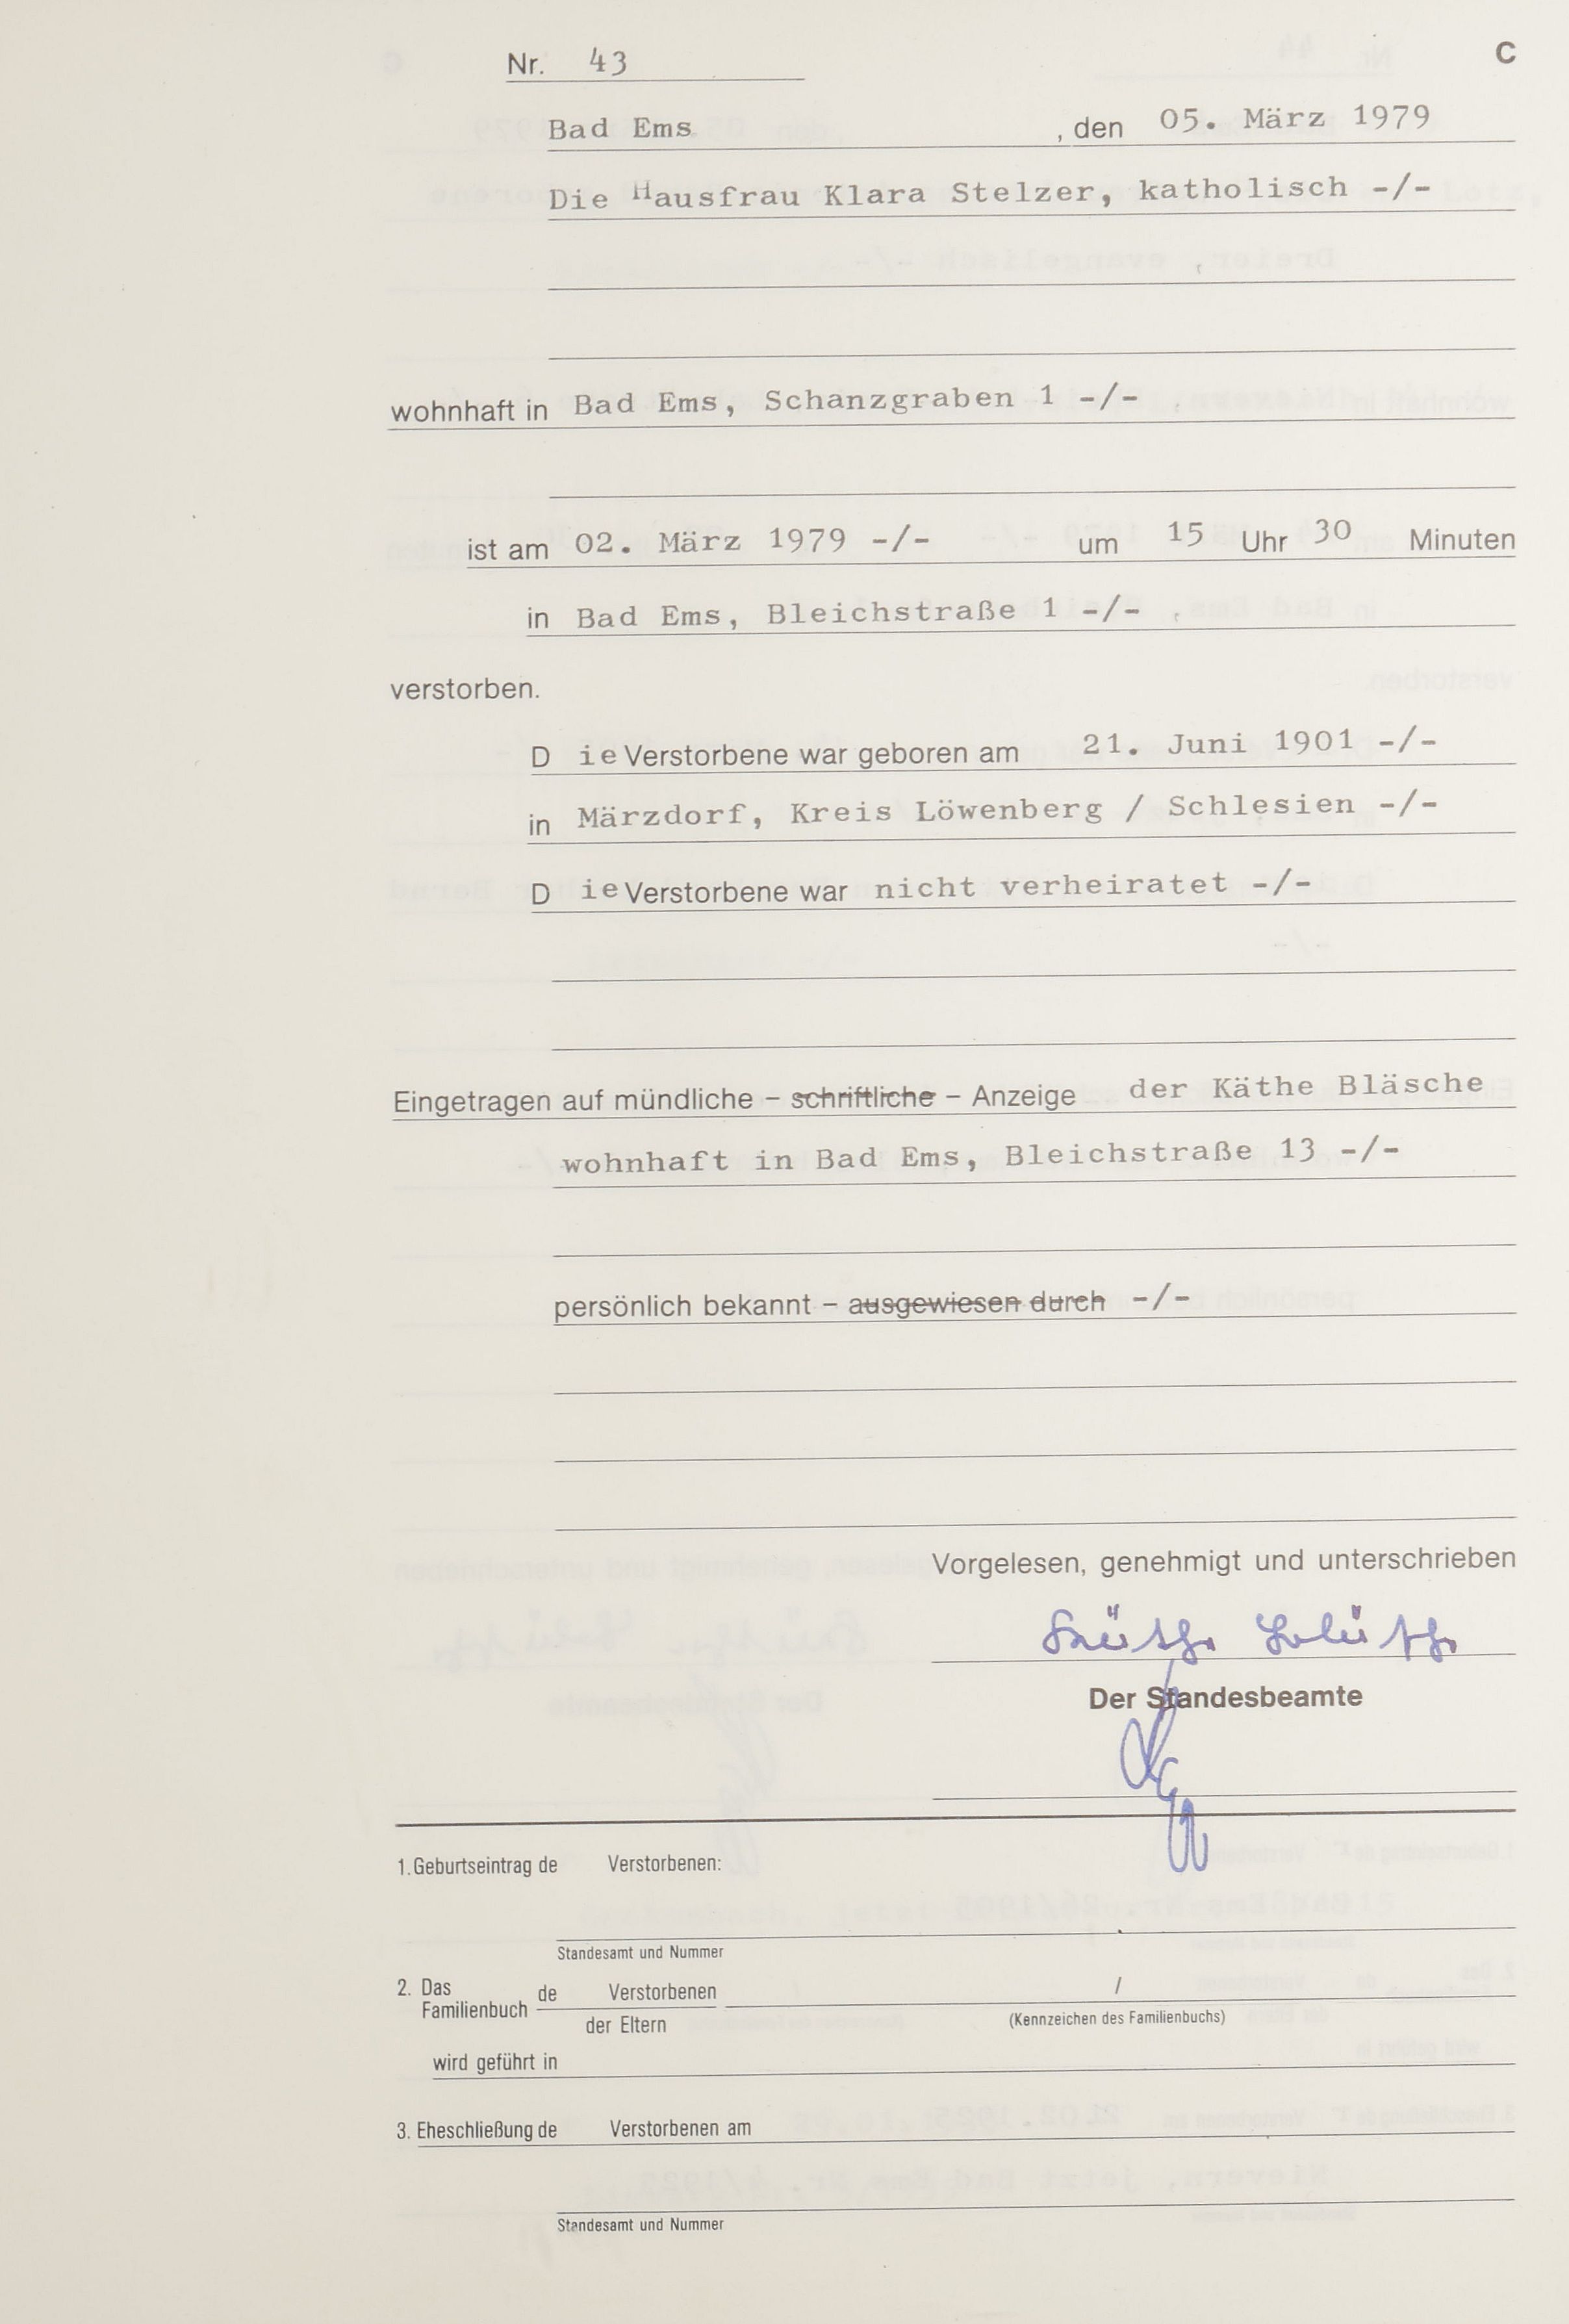 Nr. 43 C
Bad Ems , den 05. März 1979
Die Hausfrau Klara Stelzer, katholisch -/-
wohnhaft in Bad Ems, Schanzgraben 1 -/-
ist am 02. März 1979 -/- um 15 Uhr 30 Minuten
in Bad Ems, Bleichstraße 1 -/-
verstorben.
D ie Verstorbene war geboren am 21. Juni 1901 -/-
in Märzdorf, Kreis Löwenberg / Schlesien -/-
D ie Verstorbene war nicht verheiratet -/-
Eingetragen auf mündliche – schriftliche – Anzeige der Käthe Bläsche
wohnhaft in Bad Ems, Bleichstraße 13 -/-
persönlich bekannt – ausgewiesen durch -/-
Vorgelesen, genehmigt und unterschrieben
Der Standesbeamte
1. Geburtseintrag de Verstorbenen:
Standesamt und Nummer
2. Das Familienbuch de Verstorbenen /
der Eltern (Kennzeichen des Familienbuchs)
wird geführt in
3. Eheschließung de Verstorbenen am
Standesamt und Nummer